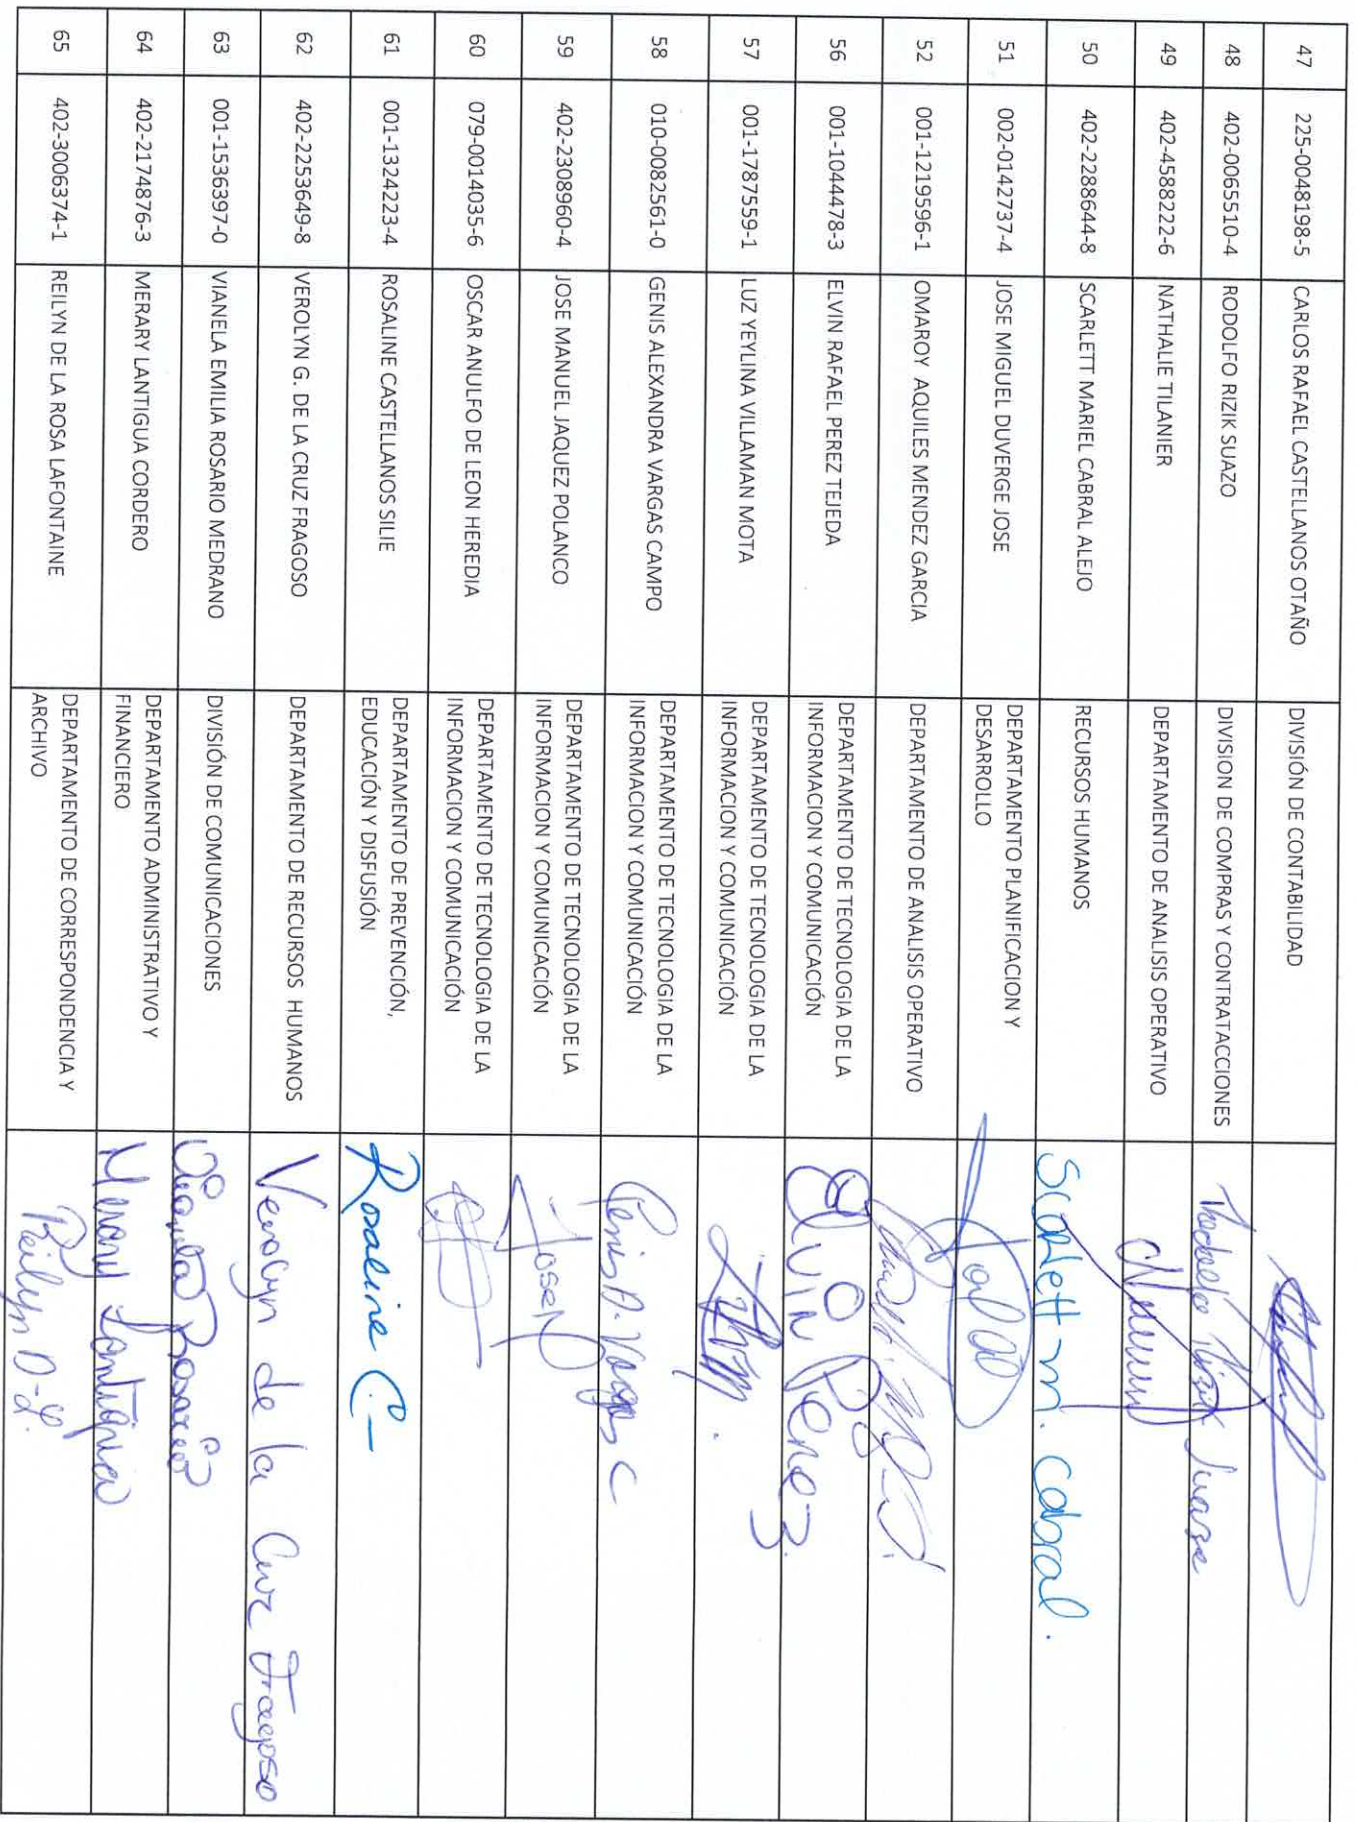 47 225-0048198-5 CARLOS RAFAEL CASTELLANOS OTAÑO DIVISIÓN DE CONTABILIDAD
48 402-0065510-4 RODOLFO RIZIK SUAZO DIVISION DE COMPRAS Y CONTRATACCIONES
49 402-4588222-6 NATHALIE TILANIER DEPARTAMENTO DE ANALISIS OPERATIVO
50 402-2288644-8 SCARLETT MARIEL CABRAL ALEJO RECURSOS HUMANOS Scarlett m. Cabral.
51 002-0142737-4 JOSE MIGUEL DUVERGE JOSE DEPARTAMENTO PLANIFICACION Y
DESARROLLO
52 001-1219596-1 OMAROY AQUILES MENDEZ GARCIA DEPARTAMENTO DE ANALISIS OPERATIVO
56 001-1044478-3 ELVIN RAFAEL PEREZ TEJEDA DEPARTAMENTO DE TECNOLOGIA DE LA
INFORMACION Y COMUNICACIÓN Elvin Perez.
57 001-1787559-1 LUZ YEYLINA VILLAMAN MOTA DEPARTAMENTO DE TECNOLOGIA DE LA
INFORMACION Y COMUNICACIÓN
58 010-0082561-0 GENIS ALEXANDRA VARGAS CAMPO DEPARTAMENTO DE TECNOLOGIA DE LA
INFORMACION Y COMUNICACIÓN Genis A. Vargas C
59 402-2308960-4 JOSE MANUEL JAQUEZ POLANCO DEPARTAMENTO DE TECNOLOGIA DE LA
INFORMACION Y COMUNICACIÓN
60 079-0014035-6 OSCAR ANULFO DE LEON HEREDIA DEPARTAMENTO DE TECNOLOGIA DE LA
INFORMACION Y COMUNICACIÓN
61 001-1324223-4 ROSALINE CASTELLANOS SILIE DEPARTAMENTO DE PREVENCIÓN,
EDUCACIÓN Y DISFUSIÓN Rosaline C
62 402-2253649-8 VEROLYN G. DE LA CRUZ FRAGOSO DEPARTAMENTO DE RECURSOS HUMANOS Verolyn de la Cruz Fragoso
63 001-1536397-0 VIANELA EMILIA ROSARIO MEDRANO DIVISIÓN DE COMUNICACIONES Vianela Rosario
64 402-2174876-3 MERARY LANTIGUA CORDERO DEPARTAMENTO ADMINISTRATIVO Y
FINANCIERO Merary Lantigua
65 402-3006374-1 REILYN DE LA ROSA LAFONTAINE DEPARTAMENTO DE CORRESPONDENCIA Y
ARCHIVO Reilyn D-L.